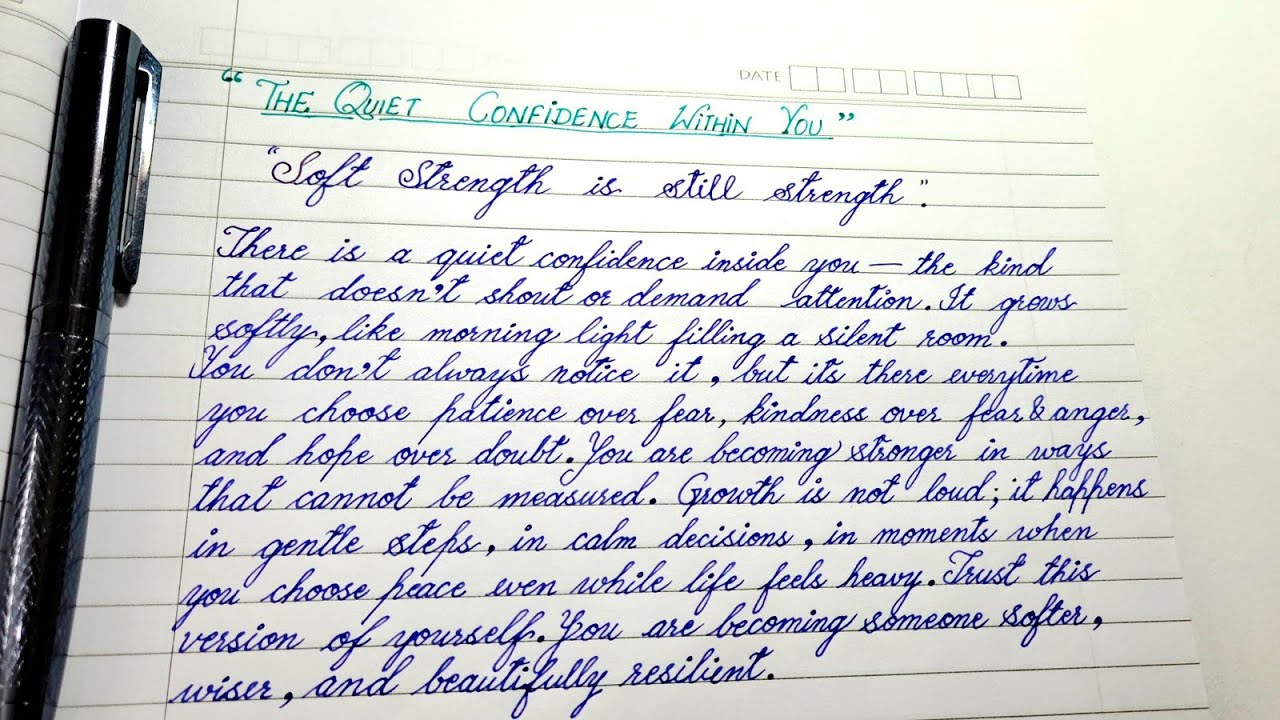 DATE
“THE QUIET CONFIDENCE WITHIN YOU”
“Soft Strength is still strength”.
There is a quiet confidence inside you — the kind
that doesn't shout or demand attention. It grows
softly, like morning light filling a silent room.
You don't always notice it, but its there everytime
you choose patience over fear, kindness over fear & anger,
and hope over doubt. You are becoming stronger in ways
that cannot be measured. Growth is not loud; it happens
in gentle steps, in calm decisions, in moments when
you choose peace even while life feels heavy. Trust this
version of yourself. You are becoming someone softer,
wiser, and beautifully resilient.